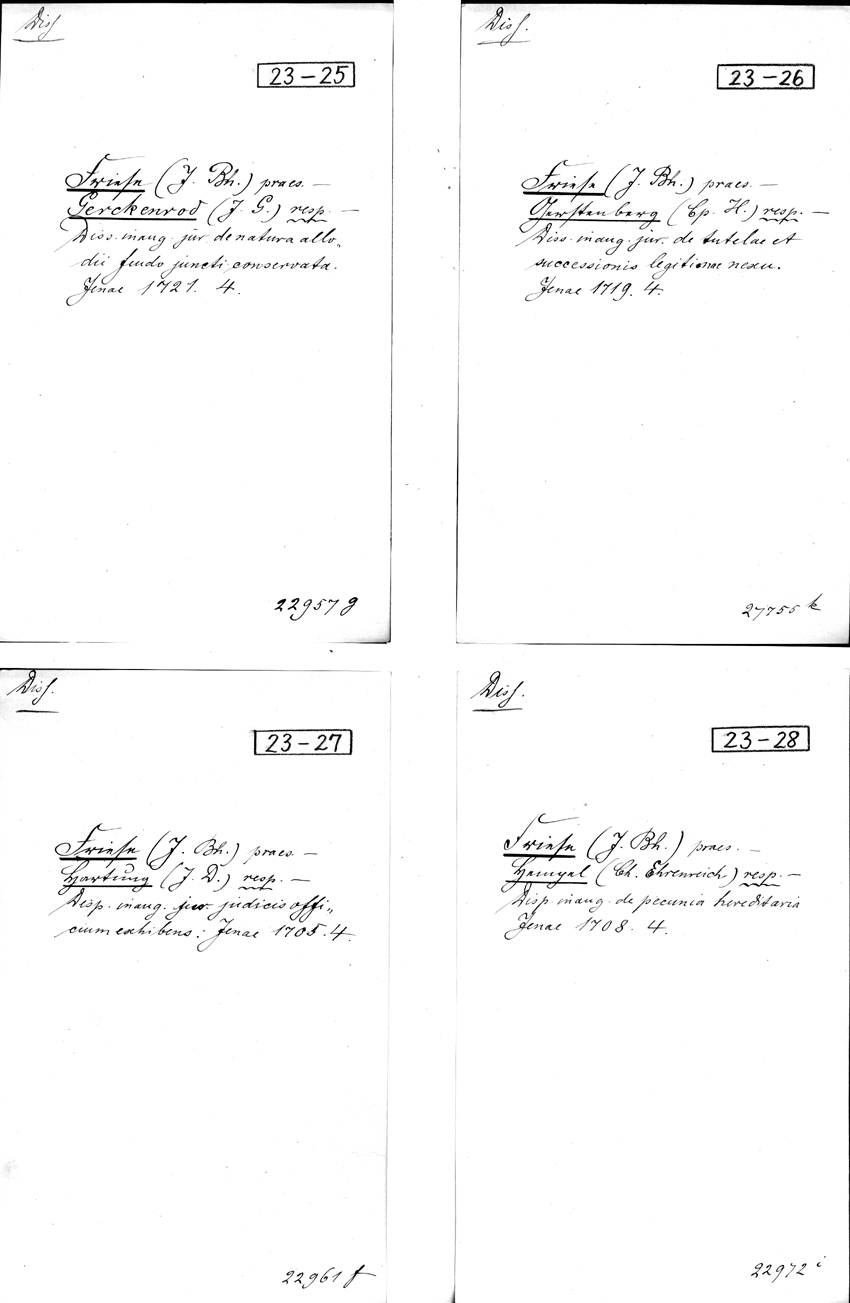 Diss
23-25
Friese (J. Bh.) praes. —
Gerckenrod (J. G.) resp. —
Diss. inaug. jur. de natura allo„
dii feudo juncti conservata.
Jenae 1721. 4.
22957 g
Diss.
23-26
Friese (J. Bh.) praes. —
Gerstenberg (Cp. H.) resp. —
Diss. inaug. jur. de tutelae et
successionis legitimae nexu.
Jenae 1719. 4.
27755 k
Diss.
23-27
Friese (J. Bh.) praes. —
Hartung (J. D.) resp. —
Disp. inaug. jur. judicis offi„
cium exhibens: Jenae 1705. 4.
22961 f
Diss.
23-28
Friese (J. Bh.) praes. —
Hempel (Ch. Ehrenreich) resp. —
Disp. inaug. de pecunia hereditaria
Jenae 1708. 4.
22972 i